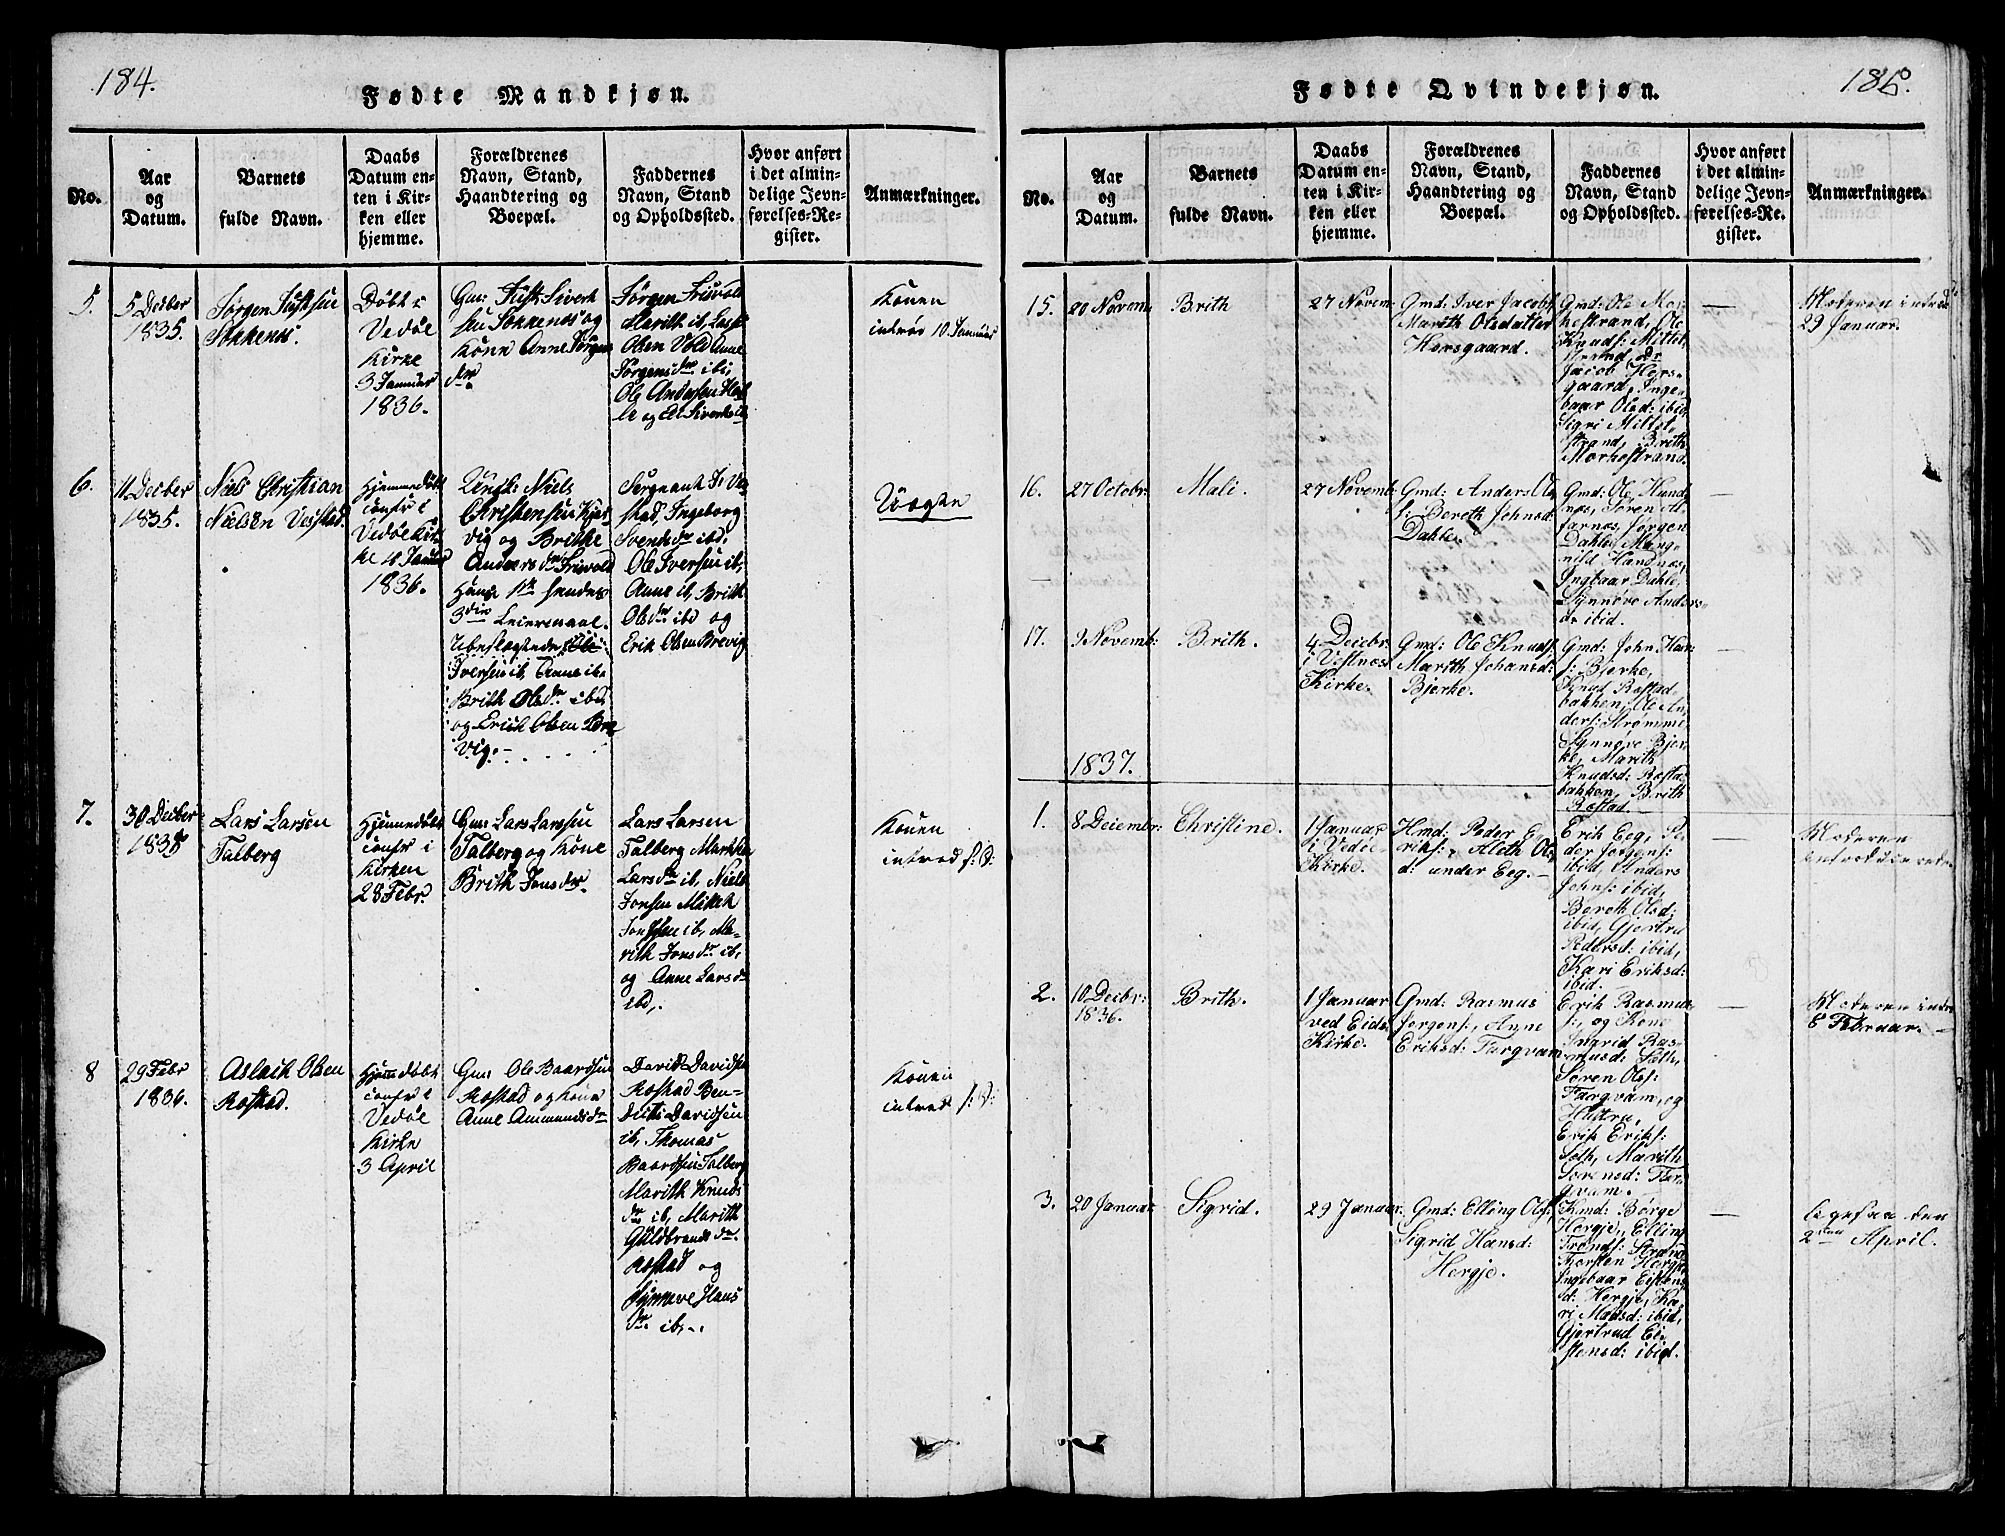 184.
Fødte Mandkjøn.
No.
Aar
og
Datum.
Barnets
fulde Navn.
Daabs
Datum en-
ten i Kir-
ken eller
hjemme.
Forældrenes
Navn, Stand,
Haandtering og
Boepæl.
Faddernes
Navn, Stand
og Opholdssted.
Hvor anført
i det almin-
delige Jevn-
førelses-Re-
gister.
Anmærkninger.
5.
5 Deiber
1835.
Jørgen
Døbt i
Vedøe
Kirke
3 Januar
1836.
og
Kone Anne Jørgens
dr
Jørgen Frisvold
Marith ib, Lars
Olsen Vold Anne
Jørgensdr ib,
Ole Andersen
Konen
introd 10 Januar
6.
11 Deiber
1835.
Niels Christian
Nielsen Vestad.
Hjemmedøbt
confr i
Vedøe Kir-
ke 10 Januar
1836.
Niels
Christensen
vig og Brithe
Andersdr Frisvold
Hans 1te hendes
3die Leiermaal.
Iversen ib, Anne ib
Brith Olsdr ibd
og Erich Olsen Bre
vig.-
Sergeant
stad, Ingeborg
Svendsdr ibd,
Ole Iversen ib,
Anne ib, Brith
Olsdr ibd og
Erik Olsen Brevig
Uægte
7.
30 Deiber
1835
Lars Larsen
Talberg
Hjemmedøbt
confr i
Kirken
28 Febr
Gm: Lars Larssen
Talberg og Kone
Brith Jonsdr.
Lars Larsen
Talberg
Larsdr ib, Niels
Jonsen
ib, Ma-
rith Jonsdr ib,
og Anne Larsdr
ibd,.
Konen
introd s: D:
8
29 Febr
1836.
Aslack Olsen
Rostad.
Hjemdøbt
confr i
Vedøe
Kirke
3 April
Gm: Ole Baardsen
Rostad og Kone
Anne Ammundsdr
David Davidsen
Rostad Ben-
Davidsen
ib, Thomas
Baardsen Talberg
Marith Knuds
dr ib, Marith
Guldbrandsdr
Rostad og
Synneve Hans
dr ib,..
Konen
introd s: D:
Fødte Qvindekjøn.
No.
Aar
og
Datum.
Barnets
fulde Navn.
Daabs
Datum en-
ten i Kir-
ken eller
hjemme.
Forældrenes
Navn, Stand,
Haandtering og
Boepæl.
Faddernes
Navn, Stand
og Opholdssted.
Hvor anført
i det almin-
delige Jevn-
førelses-Re-
gister.
Anmærkninger.
15.
20 Novem:
Brith
27 Novem:
Gmd: Iver Jacobs:
Marith Olsdatter
Horsgaard.
Gmd: Ole Mor-
kestrand, Ole
Knuds: Mittet,
Jacob Hors-
gaard, Inge-
baar Olsd: ibid,
Sigri Mittet,
strand, Brith
Morkestrand.
—
Moderen introd:
29 Januar.
16.
27 Octobr:
Mali.
27 Novemb:
Gmd: Anders Ols:
Bereth Johnsd:
Dahle.
Gmd: Ole Hand-
næs, Søren Al-
farnæs, Jørgen
Dahle,
Handnæs,
Ingbaar Dahle,
Synnøve Anders-
dr ibid.
—
17.
9 Novemb:
Brith.
4 Deibr:
i Vestnæs
Kirke.
Gmd: Ole Knuds:
Marith Johansd:
Bjerke.
Gmd: John Han-
s: Bjerke,
Knud Rostad-
bakken, Ole An-
ders: Strømme,
Synnøve Bjer-
ke, Marith
Knudsd: Rosta-
bakken, Brith
Rostad.
—
1837.
1.
8 Deiembr:
Christine.
1 Januar
i Vedøe
Kirke.
Hmd: Peder E-
riks:, Aleth Ols-
d: under Eeg.-
Erik Eeg, Pe-
der Jørgens:
ibid, Anders
Johns: ibid,
Bereth Olsd:
ibid, Gjertru
Pedersd: ibid,
Kari Eriksd:
ibid.
—
Moderen
2.
10 Deibr:
1836.
Brith.
1 Januar
ved Eids
Kirke.
Gmd: Rasmus
Jørgens:, Anne
Eriksd: Torgvam
Erik Rasmus-
s:, og Kone
Ingrid Ras-
musd: Soth,
Søren Ols:
Torgvam, og
Hustru,
Erik Eriks:
Soth, Marith
Sorensd: Tor-
gvam.
—
Moderen introd
6 Februar.
3.
20 Januar
Sigrid.
29 Januar.
Gmd: Elling Ols:
Sigrid Hansd:
Hergje.
Kmd: Børge
Hergje, Elling
Tronds: Strand
Thorsten Hergje
Ingebaar Eistens
d: Hergje, Ka-
ri Madsd: ibid,
Gjertrud Ei-
stensd: ibid.
—
2den April.